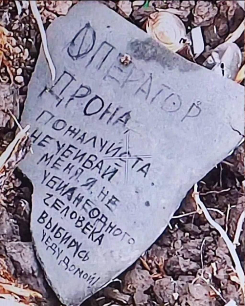 ОПЕРАТОР
ДРОНА,
ПОЖАЛУЙСТА
НЕ УБИВАЙ
МЕНЯ. Я НЕ
УБИЛ НЕ ОДНОГО
ЧЕЛОВЕКА
ВЫБИРАЮСЬ